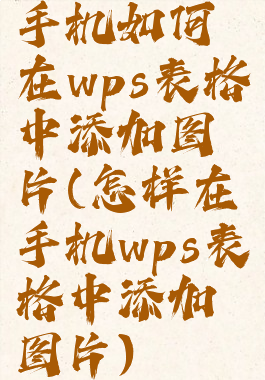 手机如何
在wps表格
中添加图
片(怎样在
手机wps表
格中添加
图片)